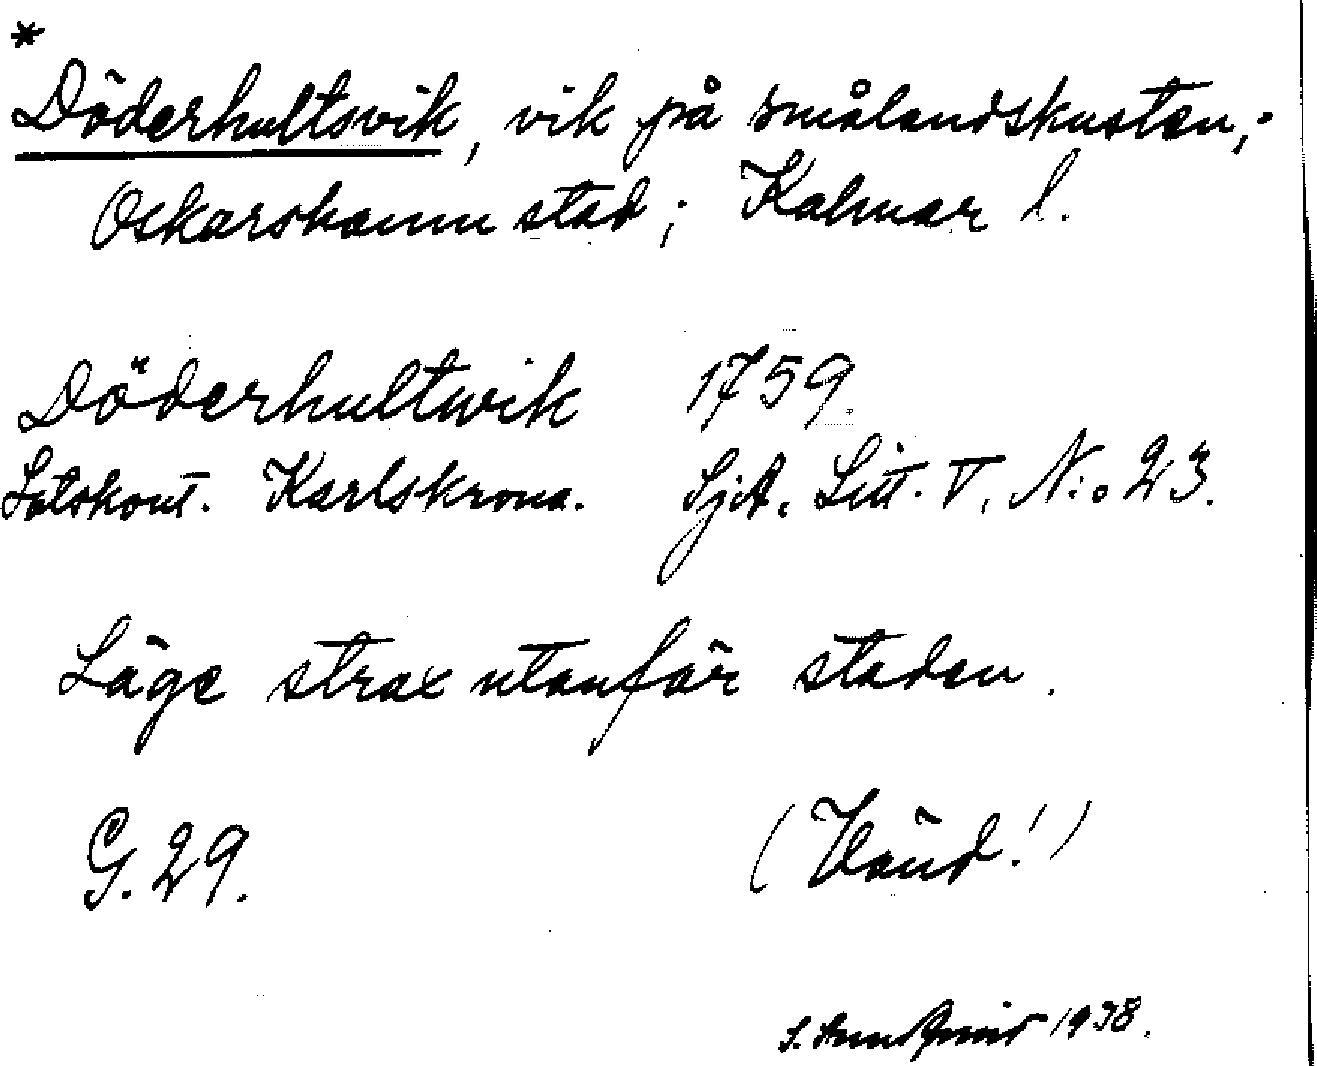 *
Döderhultsvik, vik på smålandskusten,;
Oskarshamn stad; Kalmar l.
Döderhultwik 1759.
Lotskont. Karlskrona. SjA. Litt. V. N:o 23.
Läge strax utanför staden.
G. 29. (Vänd!)
S. 1938.